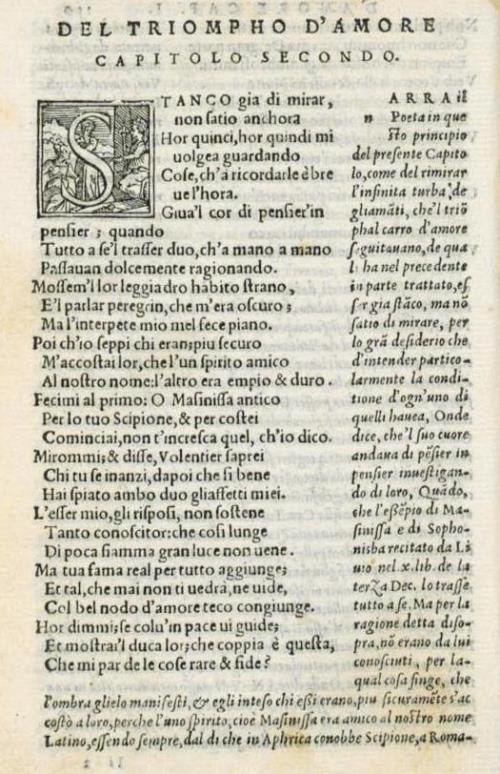 DEL TRIOMPHO D'AMORE
CAPITOLO SECONDO.
STANCO gia di mirar,
non satio anchora
Hor quinci, hor quindi mi
uolgea guardando
Cose, ch'a ricordarle è bre
ue l'hora.
Giua'l cor di pensier'in
pensier; quando
Tutto a se'l trasser duo, ch'a mano a mano
Passauan dolcemente ragionando.
Mossem'l lor leggiadro habito strano,
E'l parlar peregrin, che m'era oscuro;
Ma l'interpete mio mel fece piano.
Poi ch'io seppi chi eran; piu securo
M'accostai lor, che l'un spirito amico
Al nostro nome: l'altro era empio & duro.
Fecimi al primo: O Masinissa antico
Per lo tuo Scipione, & per costei
Cominciai, non t'incresca quel, ch'io dico.
Mirommi; & disse, Volentier saprei
Chi tu se inanzi, dapoi che si bene
Hai spiato ambo duo gli affetti miei.
L'esser mio, gli risposi, non sostene
Tanto conoscitor: che cosi lunge
Di poca fiamma gran luce non uene.
Ma tua fama real per tutto aggiunge;
Et tal, che mai non ti uedra, ne uide,
Col bel nodo d'amore teco congiunge.
Hor dimmi; se colu'in pace ui guide;
Et mostrai'l duca lor; che coppia è questa,
Che mi par de le cose rare & fide?
ARRA il
n Poeta in que
sto principio
del presente Capito
lo, come del rimirar
l'infinita turba de
gliamãti, che'l triõ
phal carro d'amore
seguitauano, de qua
li ha nel precedente
in parte trattato, es
ser gia stãco, ma nõ
satio di mirare, per
lo grã desiderio che
d'intender partico-
larmente la condi-
tione d'ogn'uno di
quelli hauea, Onde
dice, che'l suo cuore
andaua di pẽsier in
pensier inuestigan-
do di loro, Quãdo,
che l'essẽpio di Ma-
sinissa e di Sopho-
nisba recitato da Li
uio nel.x.lib.de la
terza Dec. lo trasse
tutto a se. Ma per la
ragione detta diso-
pra, nõ erano da lui
conosciuti, per la-
qual cosa finge, che
l'ombra glielo manifesti, & egli inteso chi eßi erano, piu sicuramẽte s'ac
costò a loro, perche l'uno spirito, cioè Masinissa era amico al nostro nome
Latino, essendo sempre, dal di che in Aphrica conobbe Scipione, a Roma-